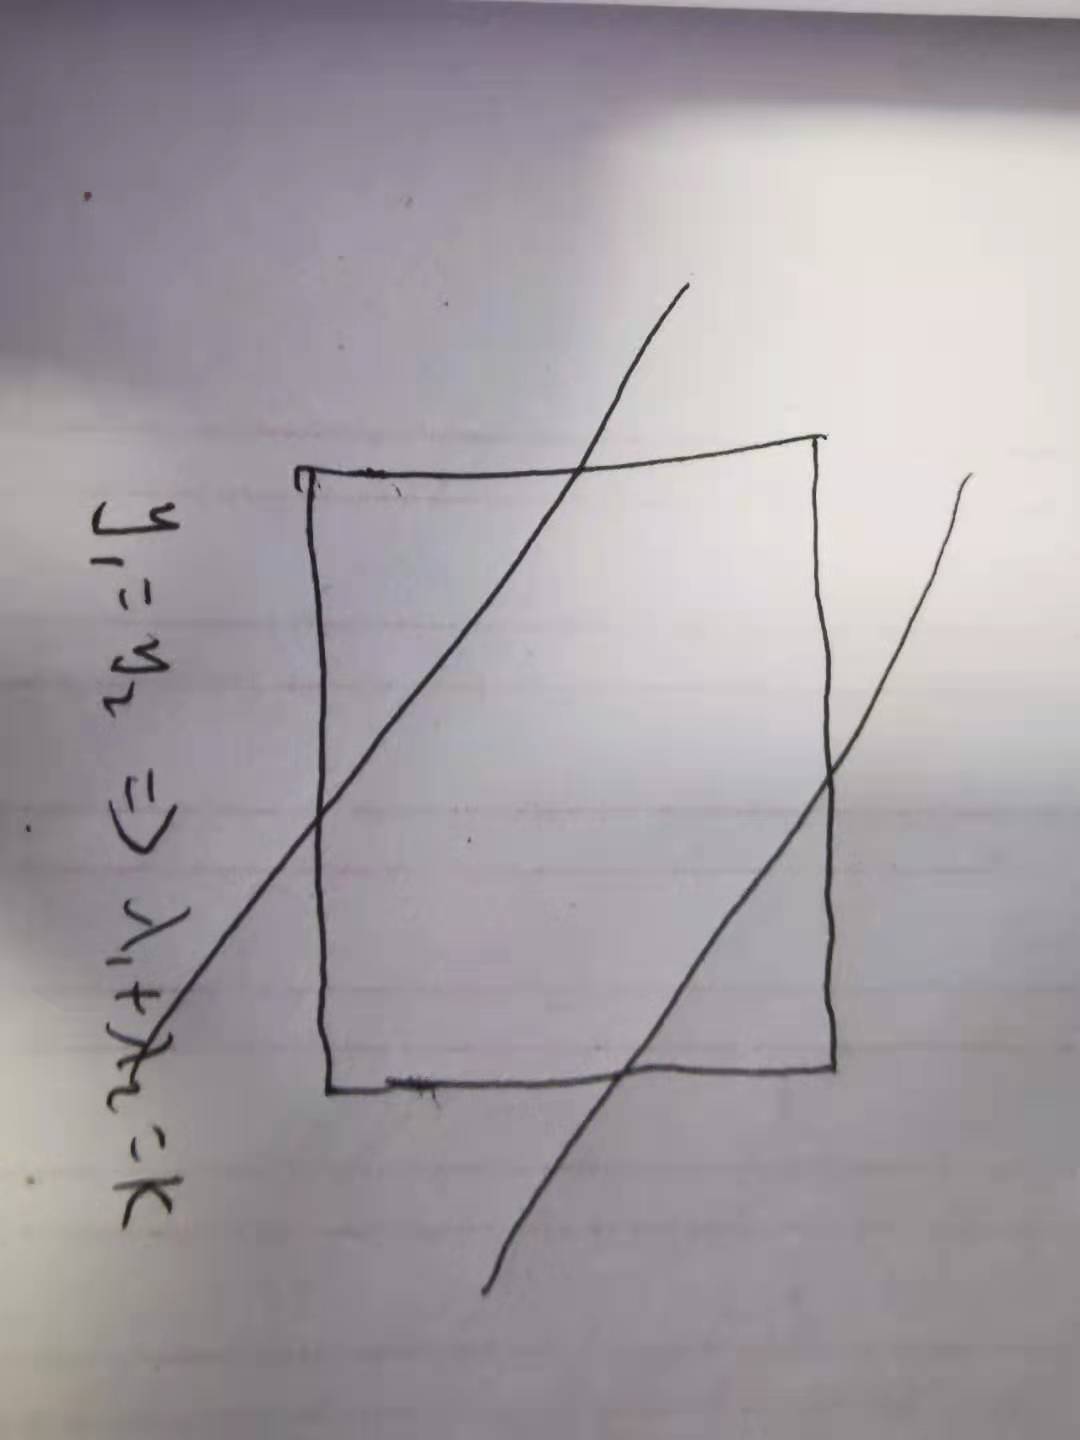 y₁ = y₂ => λ₁ + λ₂ = K